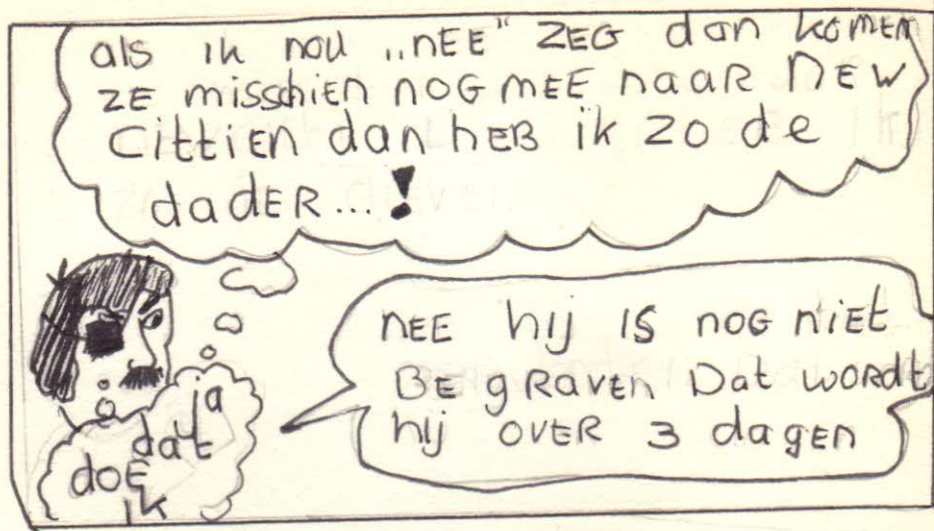 als ik nou „nEE” ZEG dan komen
ZE misschien NOG MEE NAAR NEW
Cittien dan heb ik zo de
dadER...!
ja
dat
doE
ik
NEE hij is NOG NiEt
BEgRAVEN Dat WORDT
hij OVER 3 dagen